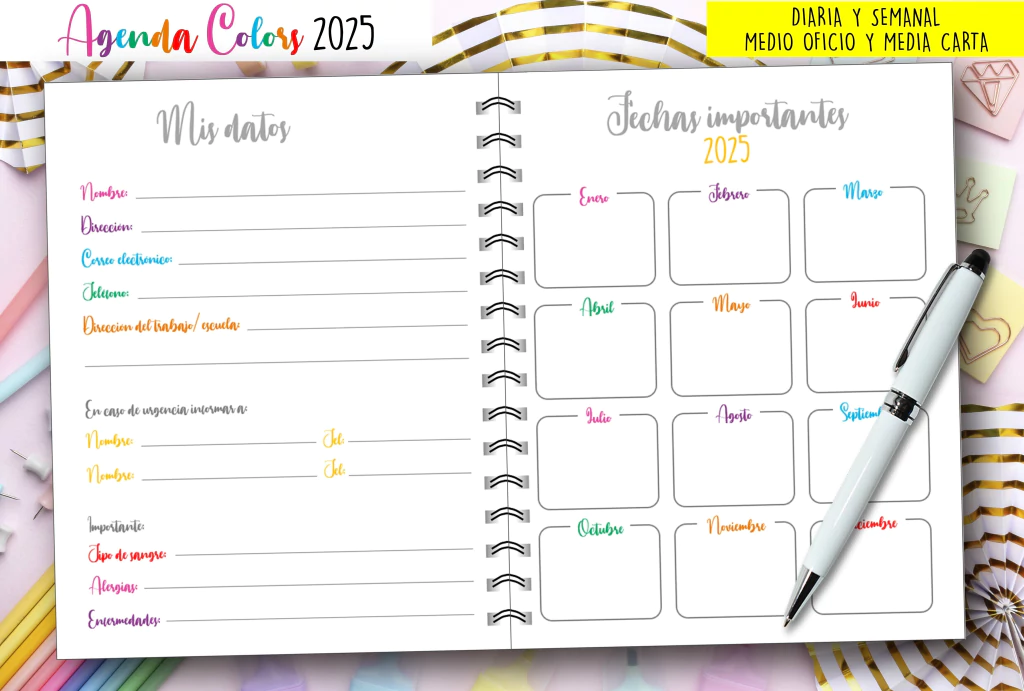 Agenda Colors 2025
DIARIA Y SEMANAL
MEDIO OFICIO Y MEDIA CARTA
Mis datos
Nombre:
Dirección:
Correo electrónico:
Teléfono:
Dirección del trabajo/ escuela:
En caso de urgencia informar a:
Nombre: Tel:
Nombre: Tel:
Importante:
Tipo de sangre:
Alergias:
Enfermedades:
Fechas importantes
2025
Enero Febrero Marzo
Abril Mayo Junio
Julio Agosto Septiemb
Octubre Noviembre ciembre